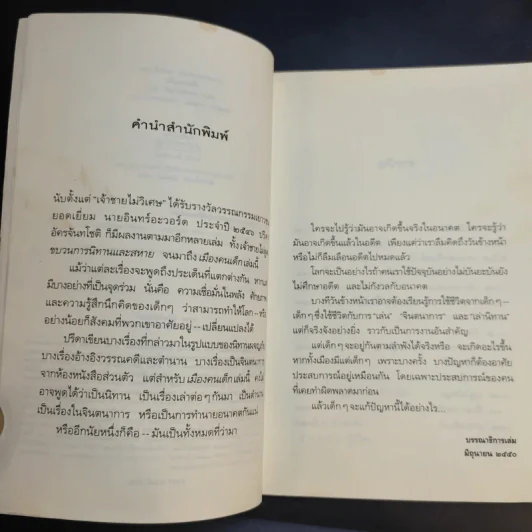 คำนำสำนักพิมพ์
นับตั้งแต่ "เจ้าชายไม่วิเศษ" ได้รับรางวัลวรรณกรรมเยาวชน
ยอดเยี่ยม นายอินทร์อะวอร์ด ประจำปี ๒๕๔๖ ปรีดา
อัครจันทโชติ ก็มีผลงานตามมาอีกหลายเล่ม ทั้งเจ้าชาย
ขบวนการนิทานและสหาย จนมาถึง เมืองคนเด็กเล่มนี้
แม้ว่าแต่ละเรื่องจะพูดถึงประเด็นที่แตกต่างกัน
มีบางอย่างที่เป็นจุดร่วม นั่นคือ ความเชื่อมั่นในพลัง
และความรู้สึกนึกคิดของเด็กๆ ว่าสามารถทำให้โลก--
อย่างน้อยก็สังคมที่พวกเขาอาศัยอยู่--เปลี่ยนแปลงได้
ปรีดาเขียนบางเรื่องที่กล่าวมาในรูปแบบของนิทาน
บางเรื่องอ้างอิงวรรณคดีและตำนาน บางเรื่องเป็นจินตนาการ
จากห้องหนังสือส่วนตัว แต่สำหรับ เมืองคนเด็กเล่มนี้
อาจพูดได้ว่าเป็นนิทาน เป็นเรื่องเล่าต่อๆ กันมา เป็นตำนาน
เป็นเรื่องในจินตนาการ หรือเป็นการทำนายอนาคตกันแน่
หรืออีกนัยหนึ่งก็คือ--มันเป็นทั้งหมดที่ว่ามา
ใครจะไปรู้ว่ามันอาจเกิดขึ้นจริงในอนาคต ใครจะรู้ว่า
มันอาจเกิดขึ้นแล้วในอดีต เพียงแต่ว่าเราลืมคิดถึงวันข้างหน้า
หรือไม่ก็ลืมเลือนอดีตไปหมดแล้ว
โลกจะเป็นอย่างไรถ้าคนเราใช้ปัจจุบันอย่างไม่บันยะบันยัง
ไม่ศึกษาอดีต และไม่กังวลกับอนาคต
บางทีวันข้างหน้าเราอาจต้องเรียนรู้การใช้ชีวิตจากเด็กๆ--
เด็กๆ ซึ่งใช้ชีวิตกับการ "เล่น" "จินตนาการ" และ "เล่านิทาน"
แต่ก็จริงจังอย่างยิ่ง ราวกับเป็นการงานอันสำคัญ
แต่เด็กๆ จะอยู่กันตามลำพังได้จริงหรือ จะเกิดอะไรขึ้น
หากทั้งเมืองมีแต่เด็กๆ เพราะบางครั้ง บางปัญหาก็ต้องอาศัย
ประสบการณ์อยู่เหมือนกัน โดยเฉพาะประสบการณ์ของคน
ที่เคยทำผิดพลาดมาก่อน
แล้วเด็กๆ จะแก้ปัญหานี้ได้อย่างไร...
บรรณาธิการเล่ม
มิถุนายน ๒๕๕๐